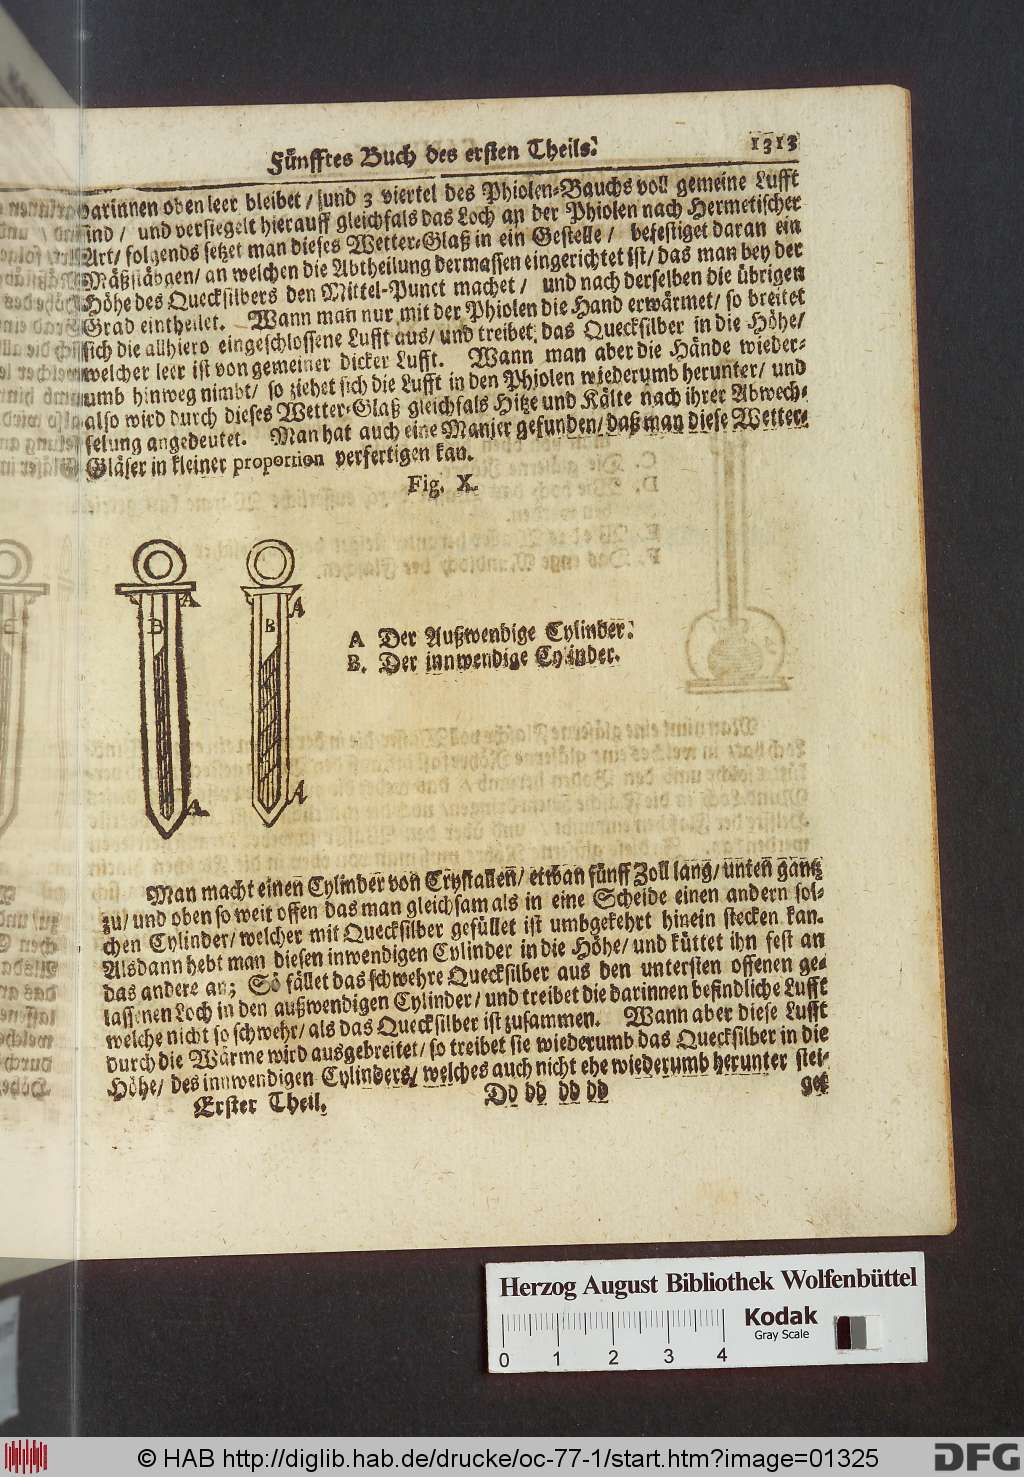 Fünfftes Buch des ersten Theils. 1313
darinnen oben leer bleibet / und 3 viertel des Phiolen-Bauchs voll gemeine Lufft
sind / und versiegelt hierauff gleichfals das Loch an der Phiolen nach Hermetischer
Art / folgends setzet man dieses Wetter-Glaß in ein Gestelle / befestiget daran ein
Mäßstäbgen / an welchen die Abtheilung dermassen eingerichtet ist / das man bey der
Höhe des Quecksilbers den Mittel-Punct machet / und nach derselben die übrigen
Grad eintheilet. Wann man nur mit der Phiolen die Hand erwärmet / so breitet
sich die allhiero eingeschlossene Lufft aus / und treibet das Quecksilber in die Höhe /
welcher leer ist von gemeiner dicker Lufft. Wann man aber die Hände wieder-
umb hinweg nimbt / so ziehet sich die Lufft in den Phiolen wiederumb herunter / und
also wird durch dieses Wetter-Glaß gleichfals Hitze und Kälte nach ihrer Abwech-
selung angedeutet. Man hat auch eine Manier gefunden / daß man diese Wetter-
Gläser in kleiner proportion verfertigen kan.
Fig. X.
A A
B B
A Der Außwendige Cylinder.
B. Der innwendige Cylinder.
A A
Man macht einen Cylinder von Crystallen / etwan fünff Zoll lang / unten gantz
zu / und oben so weit offen das man gleichsam als in eine Scheide einen andern sol-
chen Cylinder / welcher mit Quecksilber gefüllet ist umbgekehrt hinein stecken kan.
Alsdann hebt man diesen inwendigen Cylinder in die Höhe / und küttet ihn fest an
das andere an; So fället das schwehre Quecksilber aus den untersten offenen ge-
lassenen Loch in den außwendigen Cylinder / und treibet die darinnen befindliche Lufft
welche nicht so schwehr / als das Quecksilber ist zusammen. Wann aber diese Lufft
durch die Wärme wird ausgebreitet / so treibet sie wiederumb das Quecksilber in die
Höhe / des innwendigen Cylinders / welches auch nicht ehe wiederumb herunter stei-
Erster Theil. Dd dd dd dd get
Herzog August Bibliothek Wolfenbüttel
Kodak
Gray Scale
0 1 2 3 4
© HAB http://diglib.hab.de/drucke/oc-77-1/start.htm?image=01325
DFG